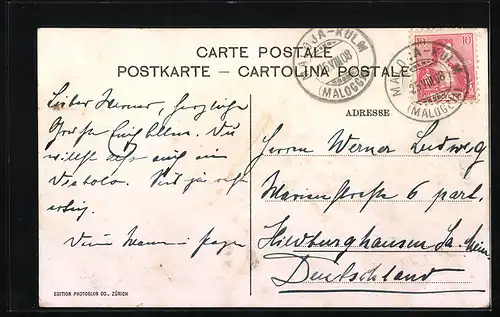 CARTE POSTALE
POSTKARTE – CARTOLINA POSTALE
MALOJA-KULM
VIII.08
(MALOGGIA)
10 10
MALOJA-KULM
VIII.08
(MALOGGIA)
ADRESSE
Lieber Werner, herzliche
Grüße
Du
willst auch ein
Diabolo.
artig.
Deine Mama
Herrn Werner Ludwig
Marienstraße 6 part.
Hildburghausen Sa. Mein.
Deutschland
EDITION PHOTOGLOB CO., ZÜRICH